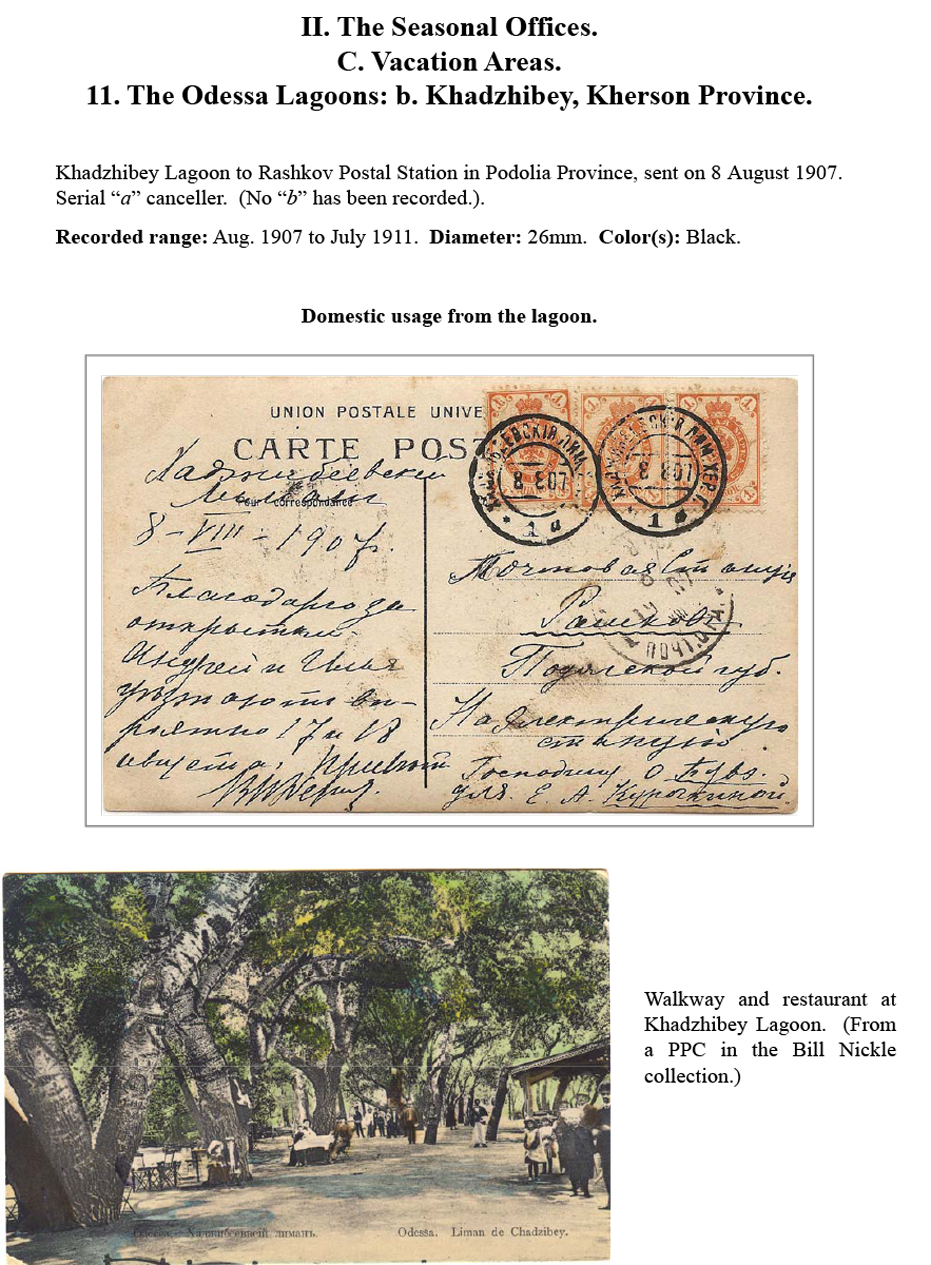 II. The Seasonal Offices.
C. Vacation Areas.
11. The Odessa Lagoons: b. Khadzhibey, Kherson Province.
Khadzhibey Lagoon to Rashkov Postal Station in Podolia Province, sent on 8 August 1907.
Serial “a” canceller. (No “b” has been recorded.).
Recorded range: Aug. 1907 to July 1911. Diameter: 26mm. Color(s): Black.
Domestic usage from the lagoon.
UNION POSTALE UNIVE
CARTE POST
Хаджибеевский
Лиманъ
Pour correspondance
8-VIII-1907г.
8 8 07
1 а
8 8 07
1 а
Благодарю за
открытки
Андрей и Илья
уѣзжаютъ вѣ-
роятно 17 и 18
августа. Привѣт
Почтовая Станція
Рашковъ
Подольской губ.
На Электрическую
станцію.
Господину
для Е. А. Курочкиной.
Walkway and restaurant at
Khadzhibey Lagoon. (From
a PPC in the Bill Nickle
collection.)
Хаджибеевскій лиманъ.
Odessa. Liman de Chadzibey.